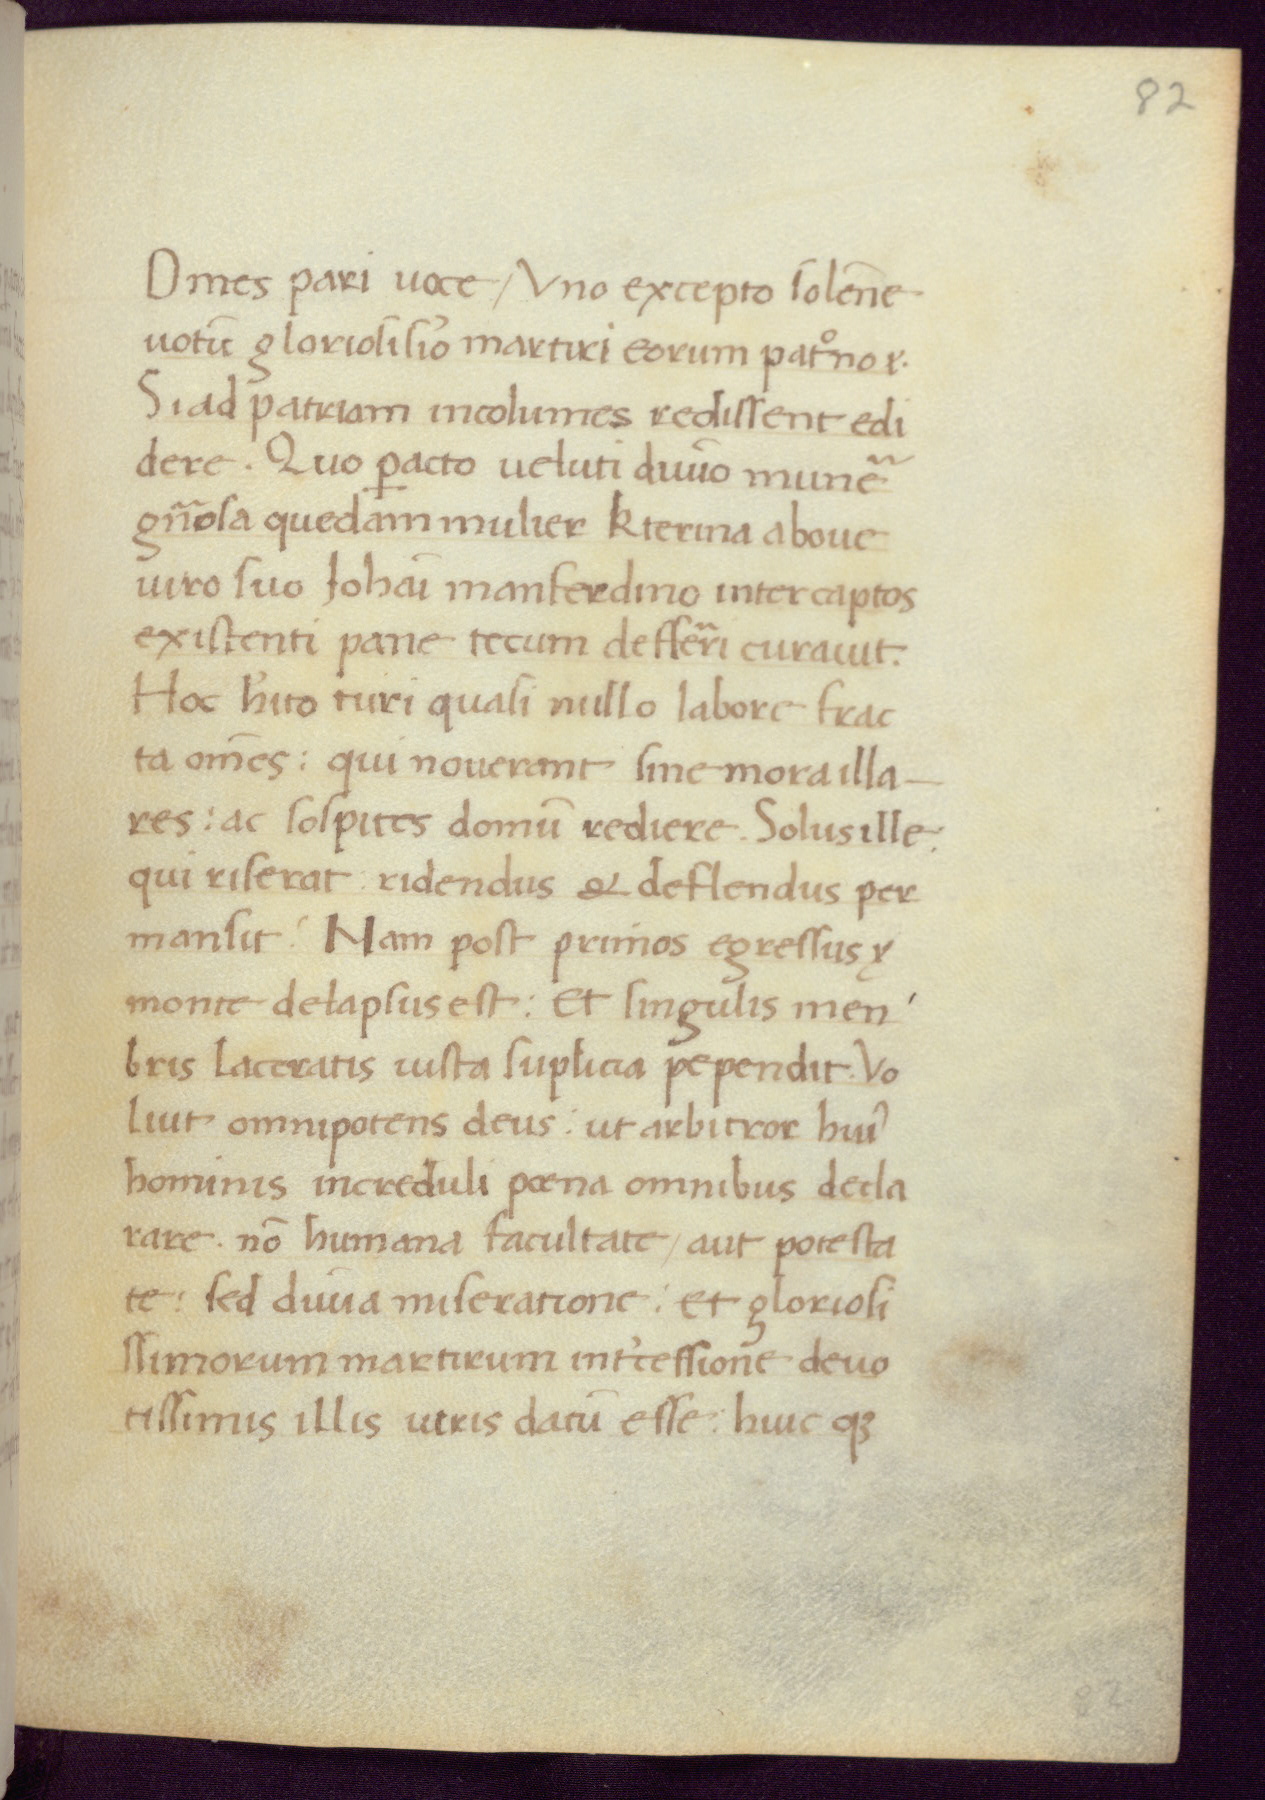 82
Omes pari uoce / Vno excepto solēne
uotū gloriosisio᷒ martiri eorum patͦno ɤ.
Si ad patriam incolumes redissent edi
dere. Quo ꝑacto ueluti diuīo munē
gn̄osa quedam mulier kterina a boue
uiro suo Johāi manferdino inter captos
existenti pane tecum defferi curauit.
Hoc h'ito turi quasi nullo labore frac
ta om̄es: qui nouerant sine mora illa-
res: ac sospites domū rediere. Solus ille:
qui riserat ridendus & deflendus per
mansit. Nam post primos egressus ɤ
monte delapsus est: Et singulis men'
bris laceratis iusta suplicia pependit. Vo
luit omnipotens deus: ut arbitror hui᷒
hominis increduli poena omnibus decla
rare. nō humana facultate / aut potesta
te: sed diuīa miseratione: et gloriosi
ssimorum martirum int'cessione deuo
tissimis illis utris datū esse: huic qꝫ
82